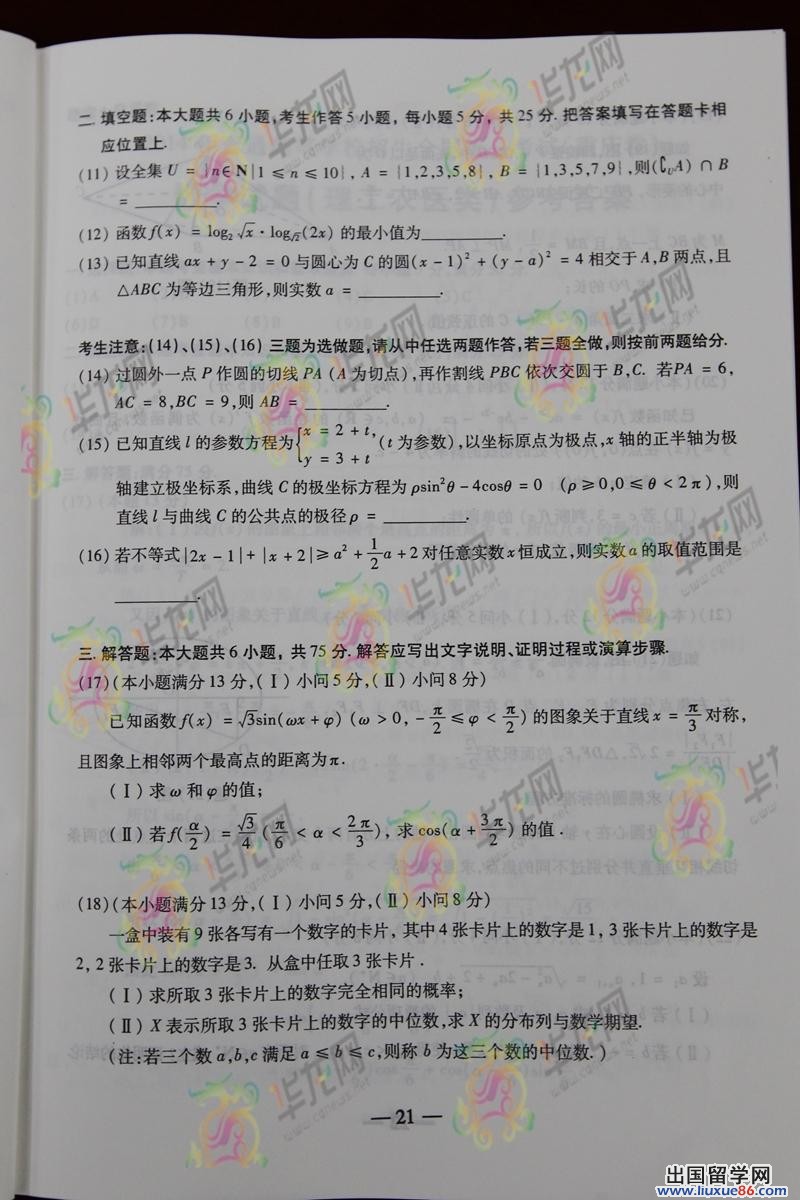 二. 填空题:本大题共 6 小题,考生作答 5 小题, 每小题 5 分, 共 25 分. 把答案填写在答题卡相
应位置上.
(11) 设全集 U = {n∈N|1 ≤ n ≤ 10}, A = {1,2,3,5,8}, B = {1,3,5,7,9},则(∁UA) ∩ B
= ________.
(12) 函数 f(x) = log₂ √x · log√2(2x) 的最小值为________.
(13) 已知直线 ax + y − 2 = 0 与圆心为 C 的圆(x − 1)² + (y − a)² = 4 相交于 A,B 两点,且
△ABC 为等边三角形,则实数 a = ________.
考生注意:(14)、(15)、(16) 三题为选做题,请从中任选两题作答,若三题全做,则按前两题给分.
(14) 过圆外一点 P 作圆的切线 PA (A 为切点),再作割线 PBC 依次交圆于 B,C. 若PA = 6,
AC = 8,BC = 9,则 AB = ________.
(15) 已知直线 l 的参数方程为{x = 2 + t, y = 3 + t (t 为参数),以坐标原点为极点,x 轴的正半轴为极
轴建立极坐标系,曲线 C 的极坐标方程为 ρsin²θ − 4cosθ = 0 (ρ ≥ 0,0 ≤ θ < 2π),则
直线 l 与曲线 C 的公共点的极径 ρ = ________.
(16) 若不等式 |2x − 1| + |x + 2| ≥ a² + 1/2 a + 2 对任意实数 x 恒成立,则实数 a 的取值范围是
________.
三. 解答题:本大题共 6 小题, 共 75 分. 解答应写出文字说明、证明过程或演算步骤.
(17)(本小题满分 13 分,(Ⅰ)小问 5 分,(Ⅱ)小问 8 分)
已知函数 f(x) = √3sin(ωx + φ) (ω > 0, −π/2 ≤ φ < π/2) 的图象关于直线 x = π/3 对称,
且图象上相邻两个最高点的距离为π.
(Ⅰ)求 ω 和 φ 的值;
(Ⅱ)若 f(α/2) = √3/4 (π/6 < α < 2π/3), 求 cos(α + 3π/2) 的值.
(18)(本小题满分 13 分,(Ⅰ)小问 5 分,(Ⅱ)小问 8 分)
一盒中装有 9 张各写有一个数字的卡片, 其中 4 张卡片上的数字是 1, 3 张卡片上的数字是
2, 2 张卡片上的数字是 3. 从盒中任取 3 张卡片.
(Ⅰ)求所取 3 张卡片上的数字完全相同的概率;
(Ⅱ)X 表示所取 3 张卡片上的数字的中位数,求 X 的分布列与数学期望.
(注:若三个数 a,b,c 满足 a ≤ b ≤ c,则称 b 为这三个数的中位数.)
— 21 —
出国留学网
www.liuxue86.com
华龙网
www.cqnews.net